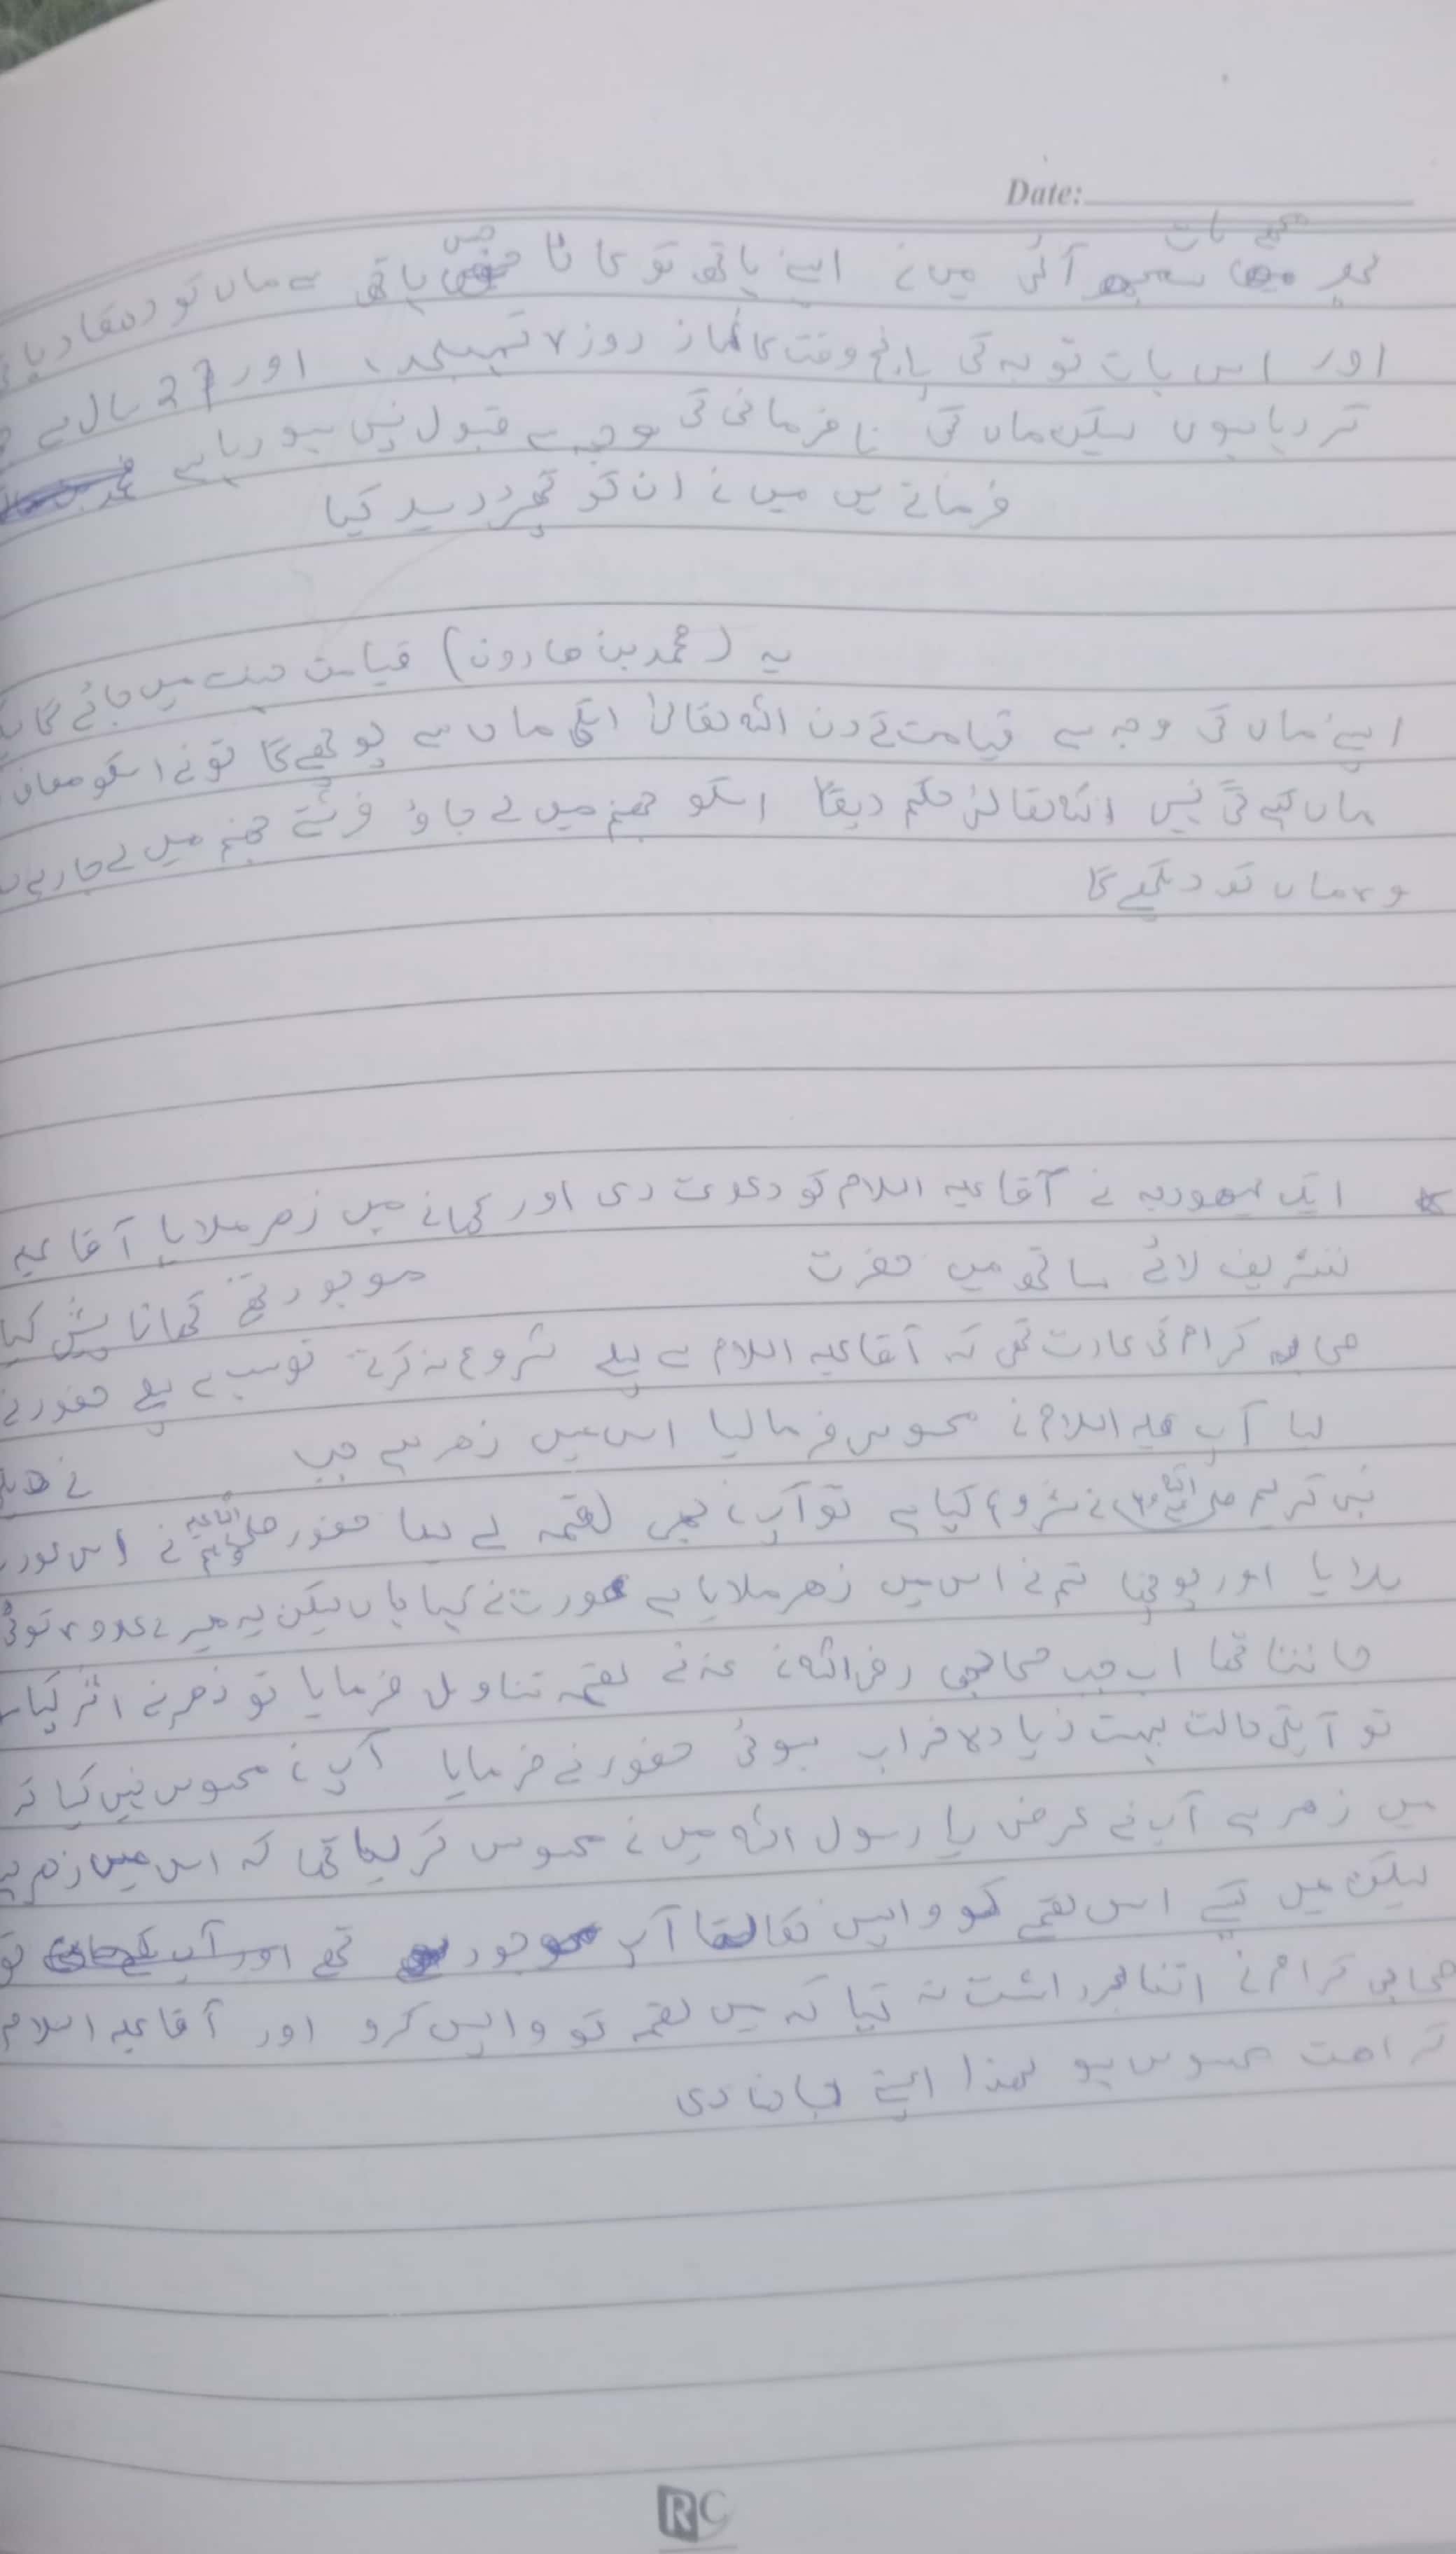 Date:
مجھے بات
پھر سمجھ آئی میں نے اپنے ہاتھ کو کاٹا جس ہاتھ سے ماں کو دھکا دیا
اور اس بات توبہ کی پانچ وقت کا نماز روزہ تہجد، اور 27 سال سے
کر رہا ہوں لیکن ماں کی نافرمانی کی وجہ سے قبول نہیں ہو رہا ہے
فرماتے ہیں میں نے ان کو پھر دید کیا
یہ (محمد بن ھارون) قیامت جنت میں جائے گا
اپنے ماں کی وجہ سے قیامت کے دن اللہ تعالیٰ اسکی ماں سے پوچھے گا تو نے اسکو معاف
ماں کہے گی نہیں اللہ تعالیٰ حکم دیگا اسکو جہنم میں لے جاؤ فرشتے جہنم میں لے جا رہے
وہ ماں کو دیکھے گا
* ایک یھودیہ نے آقا علیہ السلام کو دعوت دی اور کھانے میں زھر ملایا آقا علیہ
تشریف لائے ساتھ میں حضرت موجود تھے کھانا پیش کیا
صحابہ کرام کی عادت تھی کہ آقا علیہ السلام سے پہلے شروع نہ کرتے تو سب سے پہلے حضور نے
لیا آپ علیہ السلام نے محسوس فرما لیا اس میں زھر ہے جب نے
نبی کریم صلی اللہ علیہ وسلم نے شروع کیا ہے تو آپ نے بھی لقمہ لے لیا حضور صلی اللہ علیہ وسلم نے اس عورت
بلایا اور پوچھا تم نے اس میں زھر ملایا ہے عورت نے کہا ہاں لیکن یہ میرے علاوہ کوئی
جانتا تھا اب جب صحابی رضی اللہ عنہ نے لقمہ تناول فرمایا تو زھر نے اثر کیا
تو آپکی حالت بہت زیادہ خراب ہوئی حضور نے فرمایا آپ نے محسوس نہیں کیا کہ
میں زھر ہے آپ نے عرض یا رسول اللہ میں نے محسوس کر لیا تھا کہ اس میں زھر ہے
لیکن میں کیسے اس لقمے کو واپس نکالتا آپ موجود تھے اور آپ
صحابی کرام نے اتنا برداشت نہ کیا کہ میں لقمہ کو واپس کرو اور آقا علیہ السلام
کراھت محسوس ہو لھذا اپنے جان دی
RC